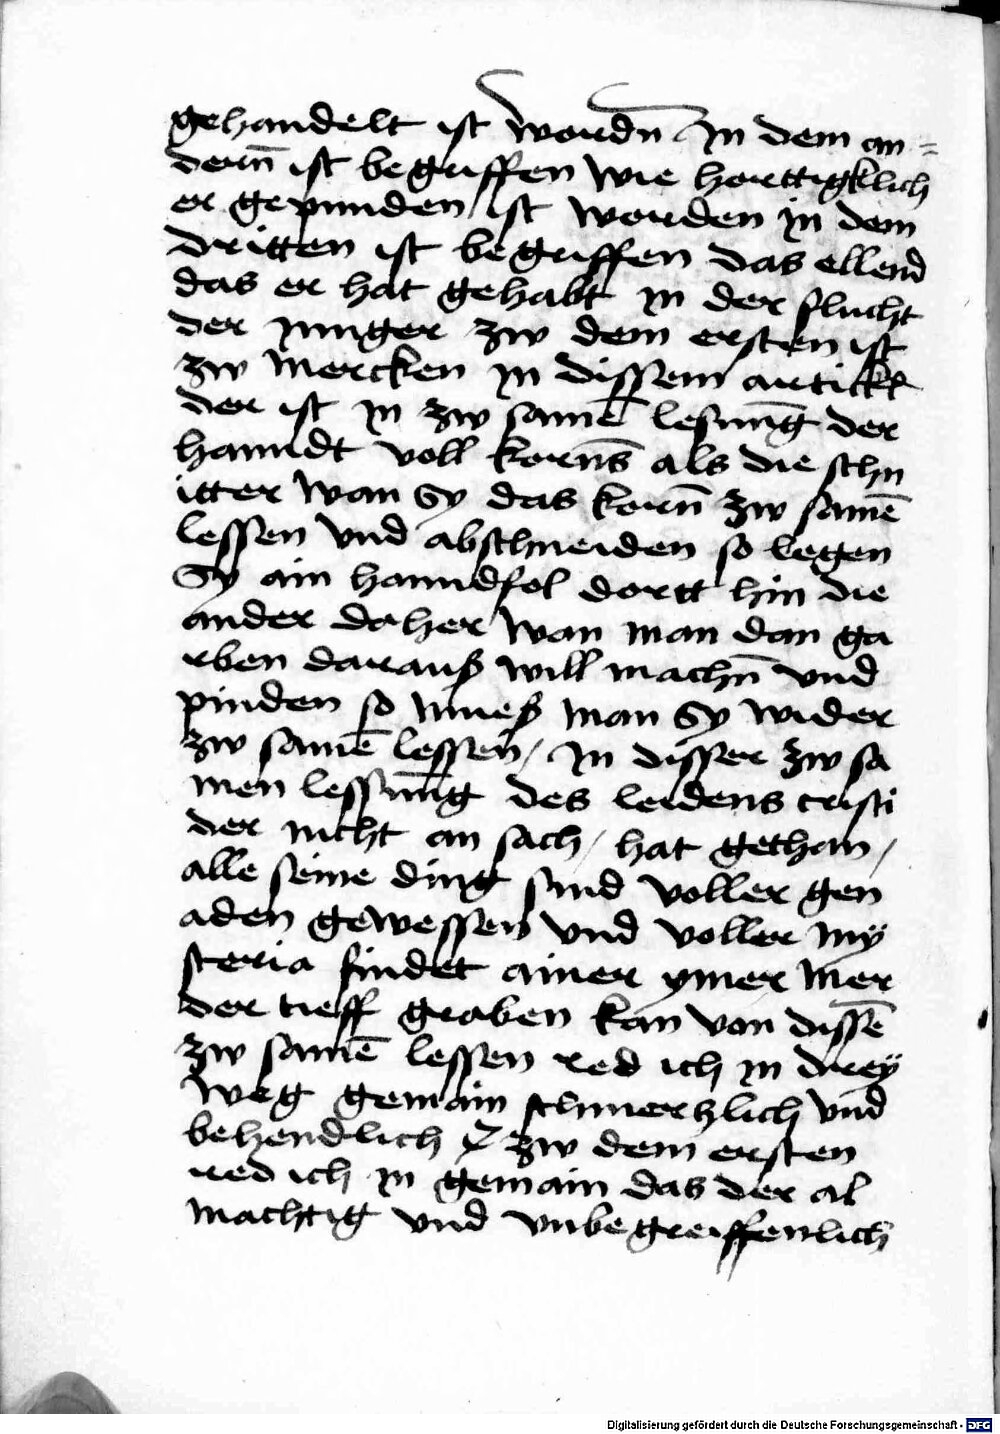 gehandelt ist wordn̄ In dem an=
dern̄ ist begriffen wie horttigklich
er gepunden ist worden in dem
dritten ist begriffen das ellend
das er hat gehabt in der flucht
der junger zw dem ersten ist
zw mercken in dissem artickel
der ist in zw samē lesun̄g der
hanndt voll kornn̄s als die schn
itter wan Sy das korn̄ zw samē
lessen vnd abschneiden so legen
Sy ain hanndfol dortt hin die
ander daher wan man dan ga
rben darauß will machn̄ vnd
pinden so mueß man Sy wider
zw samē lessen / In disser zw sa
men lessun̄g des leidens cristi
der nicht an sach / hat gethan /
alle seine ding sind voller gen
aden gewessen vnd voller my
steria findet ainer ymer mer
der tieff graben kan von dissē
zw samē lessen red ich in drey
weg gemain schmerzlich vnd
behendlich zw dem ersten
red ich in gemain das der al
machtig vnd vnbegreiffenlich
Digitalisierung gefördert durch die Deutsche Forschungsgemeinschaft - DFG